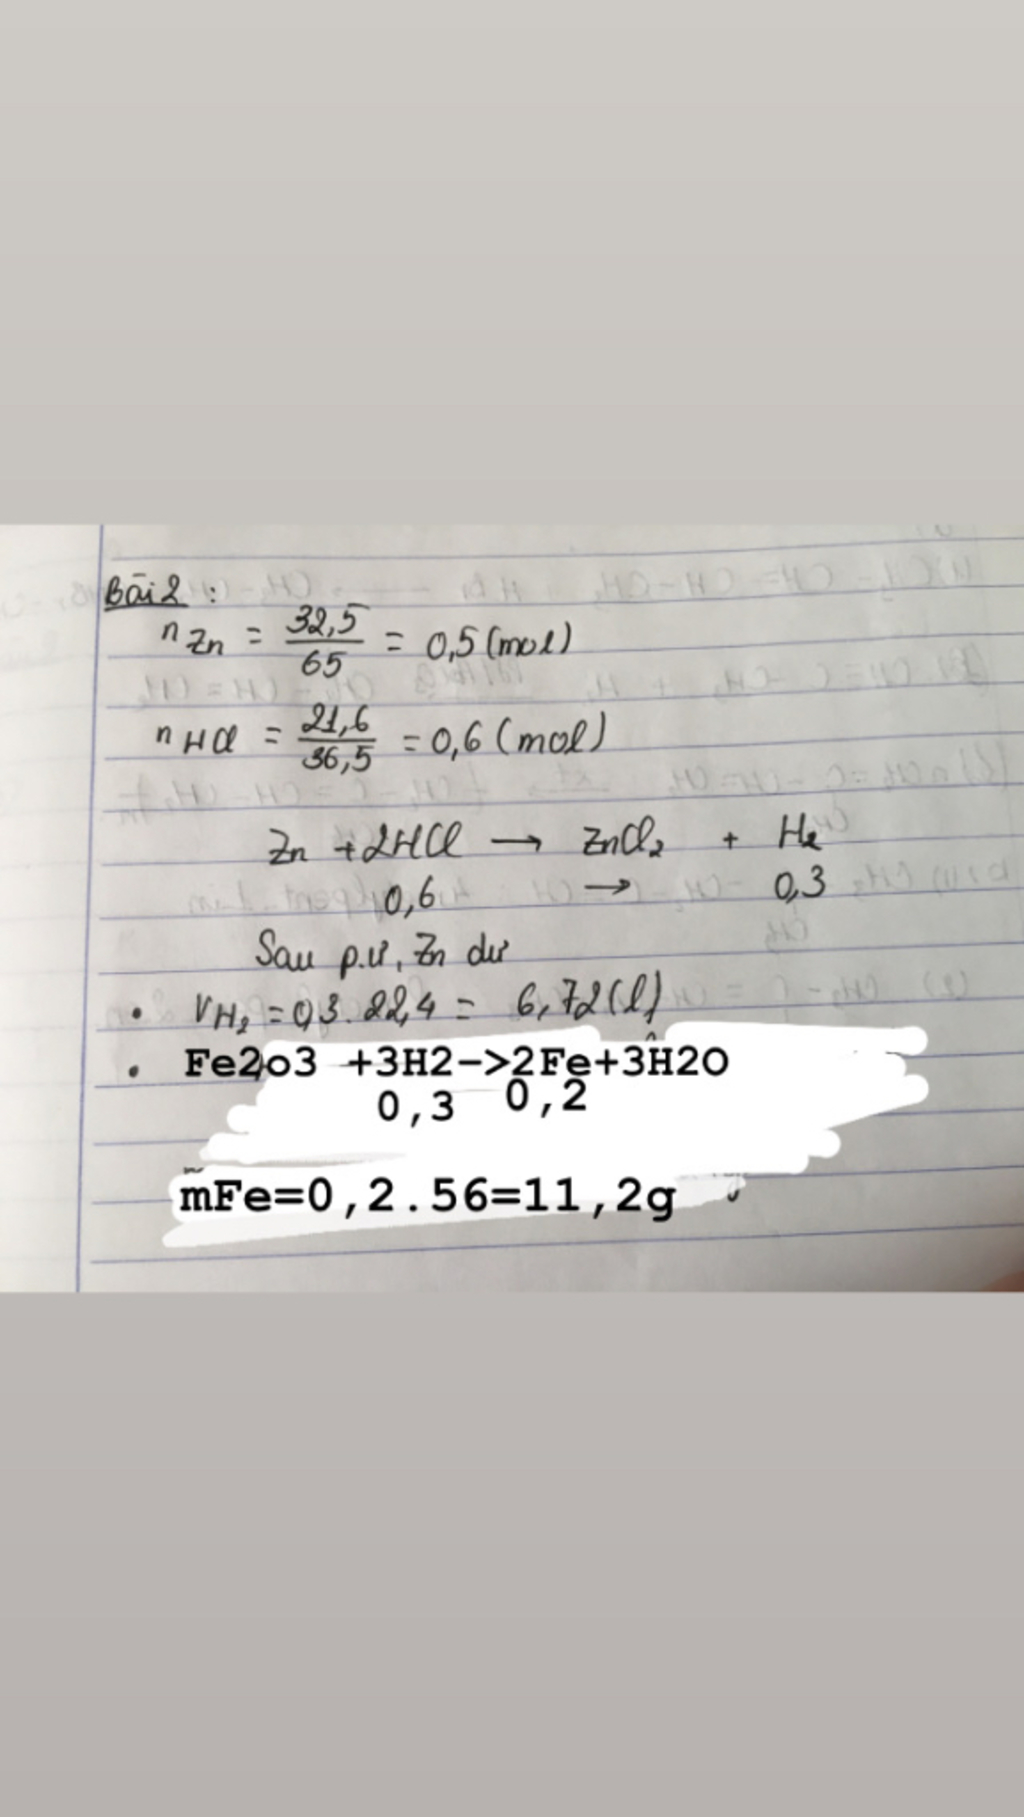 Bài 2 :
nZn = 32,5/65 = 0,5 (mol)
nHCl = 21,6/36,5 = 0,6 (mol)
Zn + 2HCl → ZnCl2 + H2
0,6 → 0,3
Sau p.ư, Zn dư
• VH2 = 0,3. 22,4 = 6,72 (l)
• Fe2o3 +3H2->2Fe+3H2O
0,3 0,2
mFe=0,2.56=11,2g